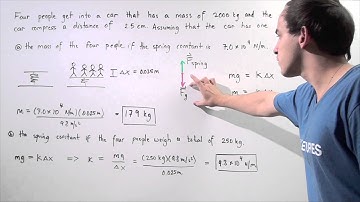 Four people get into a car that has a mass of 2000 kg and the
car compress a distance of 2.5 cm. Assuming that the car has one
ⓐ the mass of the four people if the spring constant is 7.0 × 10⁴ N/m.
Δx = 0.025m
F spring
Fg
mg = KΔx
m =
m = (7.0 × 10⁴ N/m)(0.025m) / 9.8 m/s² = 179 kg
ⓑ the spring constant if the four people weigh a total of 250kg.
mg = KΔx => K = mg / Δx = (250 kg)(9.8 m/s²) / 0.025m = 9.8 × 10⁴ N/m